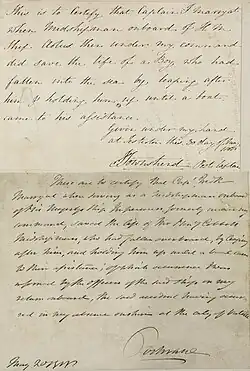 This is to certify that Captain F. Marryat
when Midshipman onboard of H. M.
Ship Aeolus then under my command
did save the life of a Boy who had
fallen into the sea by leaping after
him & holding him up until a boat
came to his assistance.
Given under my hand
at this 30 day of
Townshend Post Captain
These are to certify that Capt. Fredk
Marryat when serving as a Midshipman onboard
of His Majesty's Ship Imperieuse, formerly under my
command, saved the life of Mr Henry Cobbett
Midshipman, who had fallen overboard, by leaping
after him, and holding him up until a boat came
to their assistance; of which occurrence I was
informed by the officers of the said Ship on my
return onboard, the said accident having occur-
red in my absence onshore at the city of
Cochrane